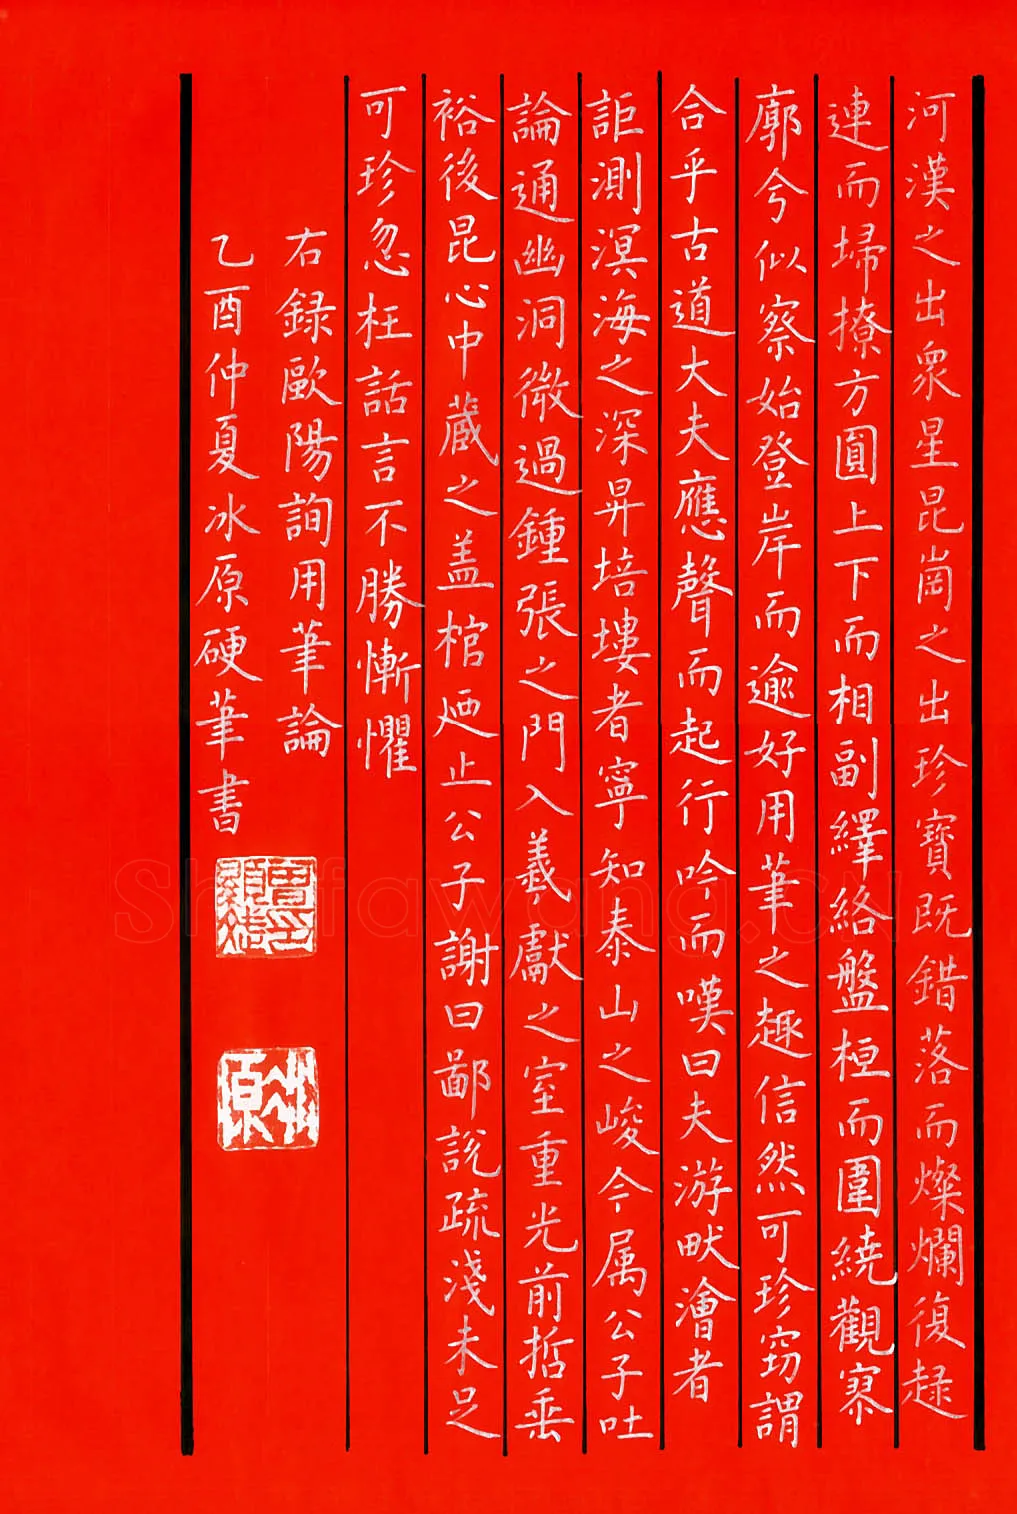 河漢之出衆星昆崗之出珍寶既錯落而燦爛復趢
連而埽撩方圓上下而相副繹絡盤桓而圍繞觀寮
廓兮似察始登岸而逾好用筆之趣信然可珍窃謂
合乎古道大夫應聲而起行吟而嘆曰夫游畎澮者
詎測溟海之深昇培塿者寧知泰山之峻今属公子吐
論通幽洞微過鍾張之門入羲獻之室重光前哲垂
裕後昆心中蔵之盖棺乃止公子謝曰鄙説疏淺未足
可珍忽枉話言不勝慚懼
右録歐陽詢用筆論
乙酉仲夏冰原硬筆書
冰原
Shufawang.CN